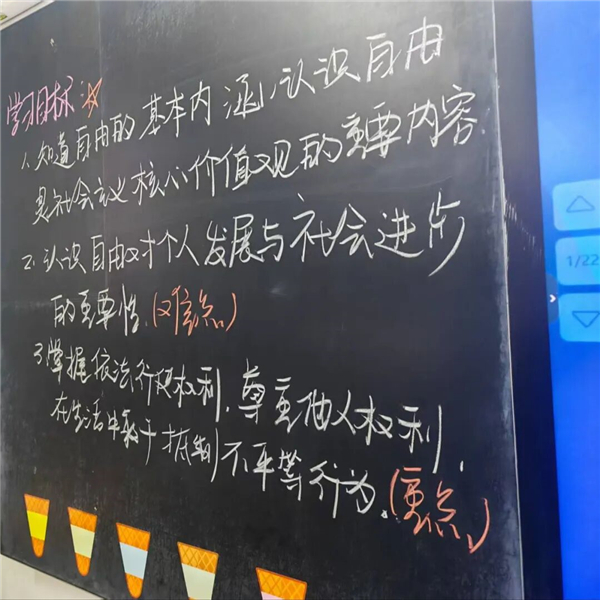 学习目标：☆
1、知道自由的基本内涵，认识自由
是社会主义核心价值观的重要内容
2、认识自由对个人发展与社会进步
的重要性.(难点)
3.掌握依法行使权利，尊重他人权利，
在生活中敢于抵制不平等行为.(重点)
1/22